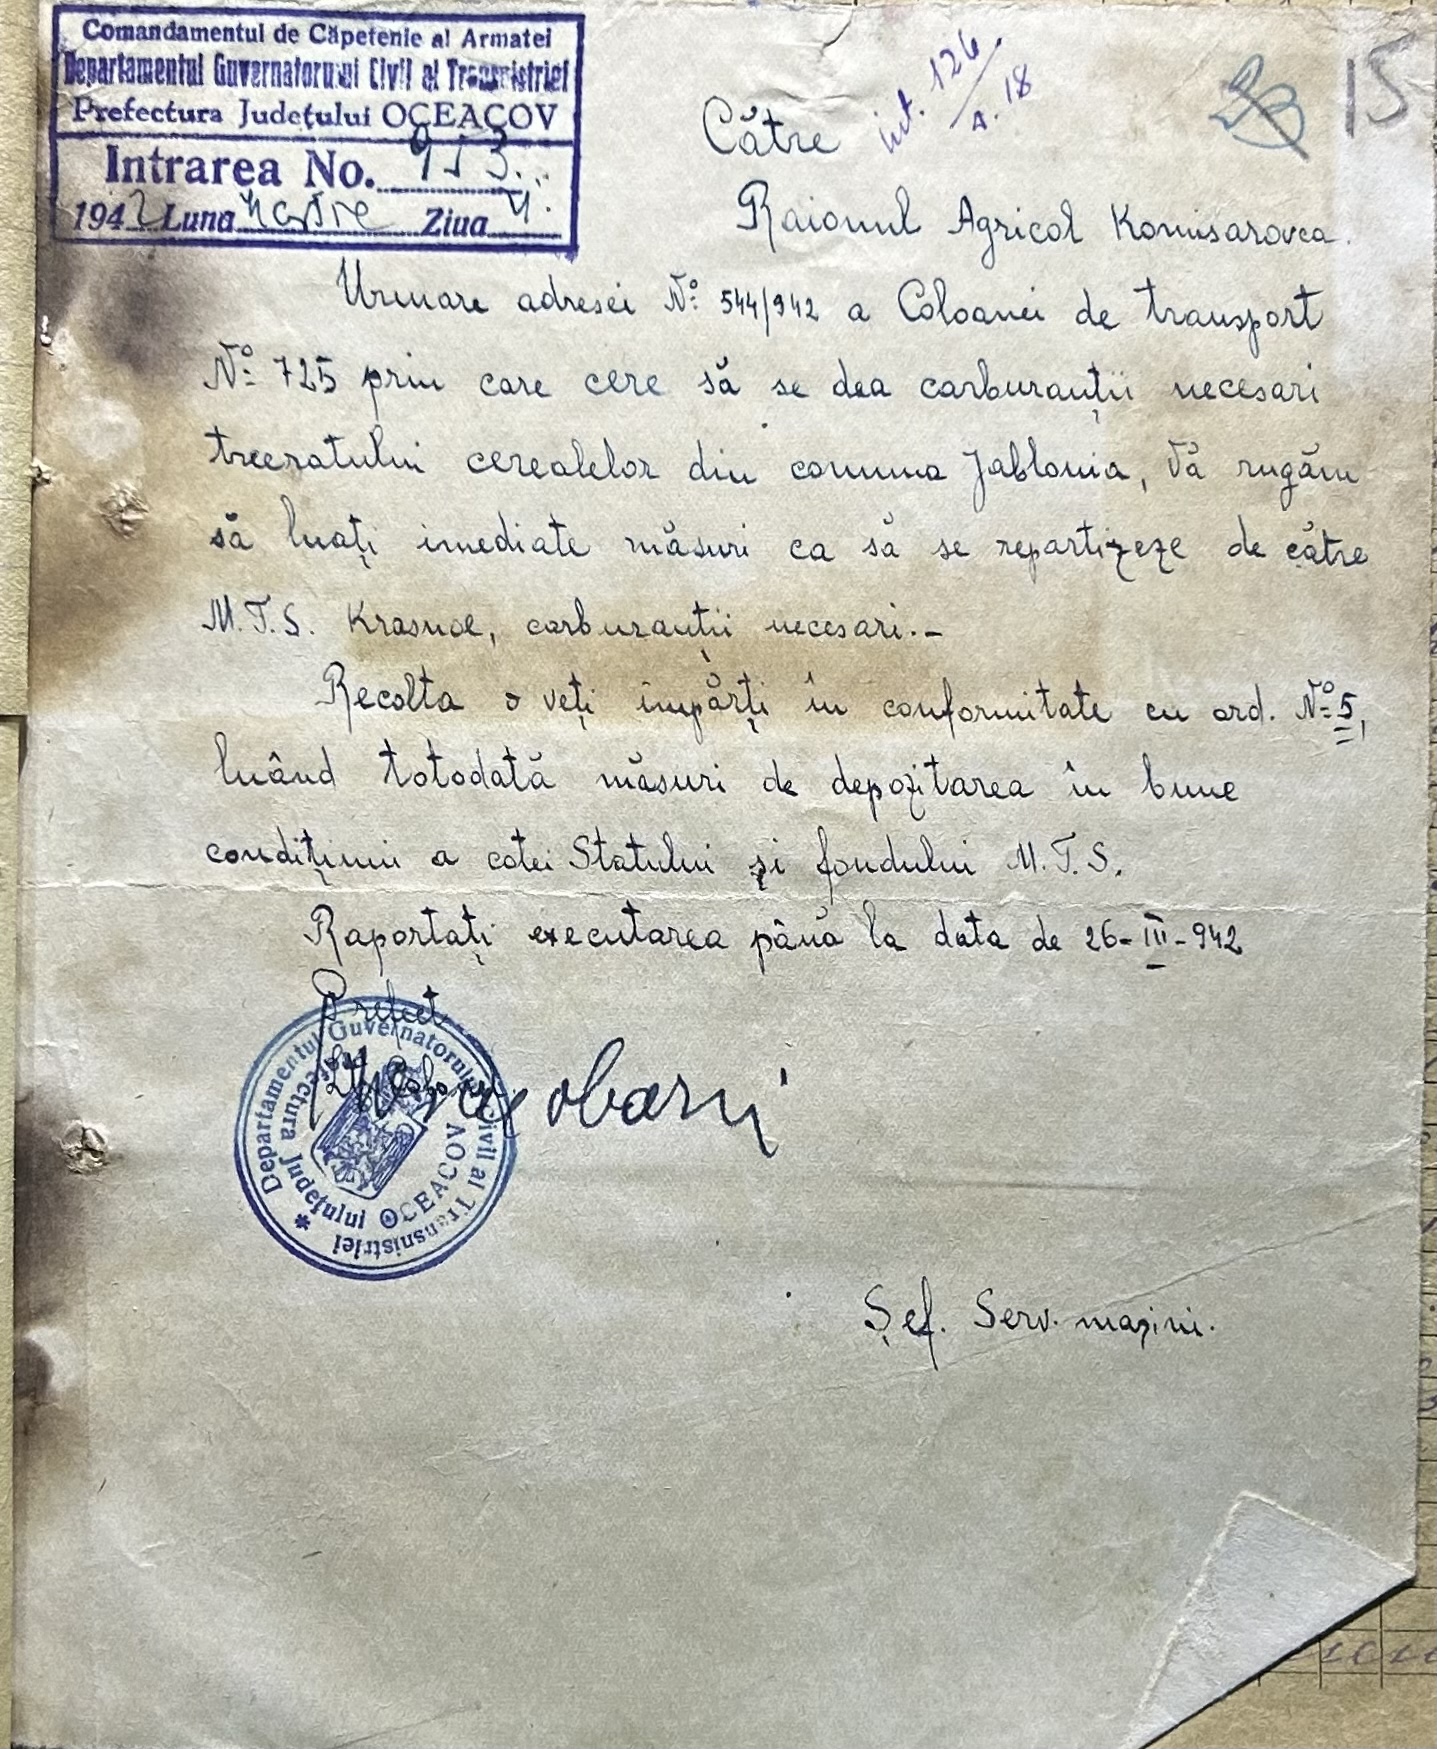 Comandamentul de Căpetenie al Armatei
Departamentul Guvernatorului Civil al Transnistriei
Prefectura Județului OCEACOV
Intrarea No. 953
1942 Luna Martie Ziua 4.
int. 126
A. 18
15
Către
Raionul Agricol Komisarovca.
Urmare adresei No 544/942 a Coloanei de transport
No 725 prin care cere să se dea carburanții necesari
treeratului cerealelor din comuna Jablonia, Vă rugăm
să luați imediate măsuri ca să se repartizeze de către
M.T.S. Krasnoe, carburanții necesari.-
Recolta o veți împărți în conformitate cu ord. No 5,
luând totodată măsuri de depozitarea în bune
condițiuni a cotei Statului și fondului M.T.S.
Raportați executarea până la data de 26-III-942
Prefect
Departamentul Guvernatorului Civil al Transnistriei
Prefectura Județului OCEACOV
Șef. Serv. mașini.